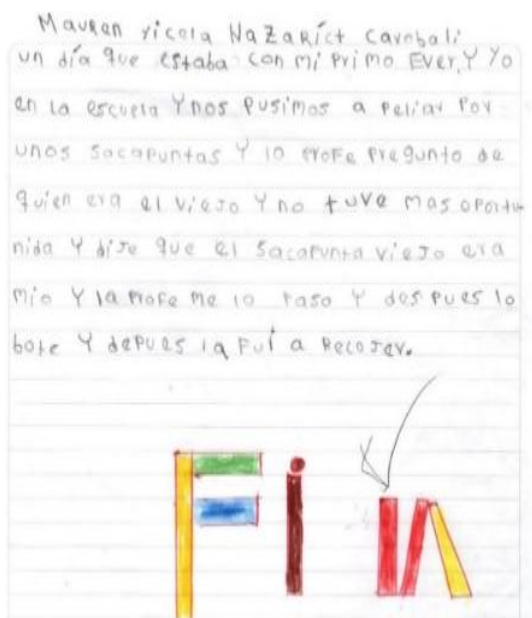 Mauren Yicela Nazarict Carabali
un día que estaba con mi primo Ever, Y Yo
en la escuela Y nos pusimos a peliar por
unos sacapuntas Y lo profe pregunto de
quien era el viejo Y no tuve mas oportu
nida Y dije que el sacapunta viejo era
mio Y la profe me lo paso Y des pues lo
bote Y depues la fui a recojer.
FiN